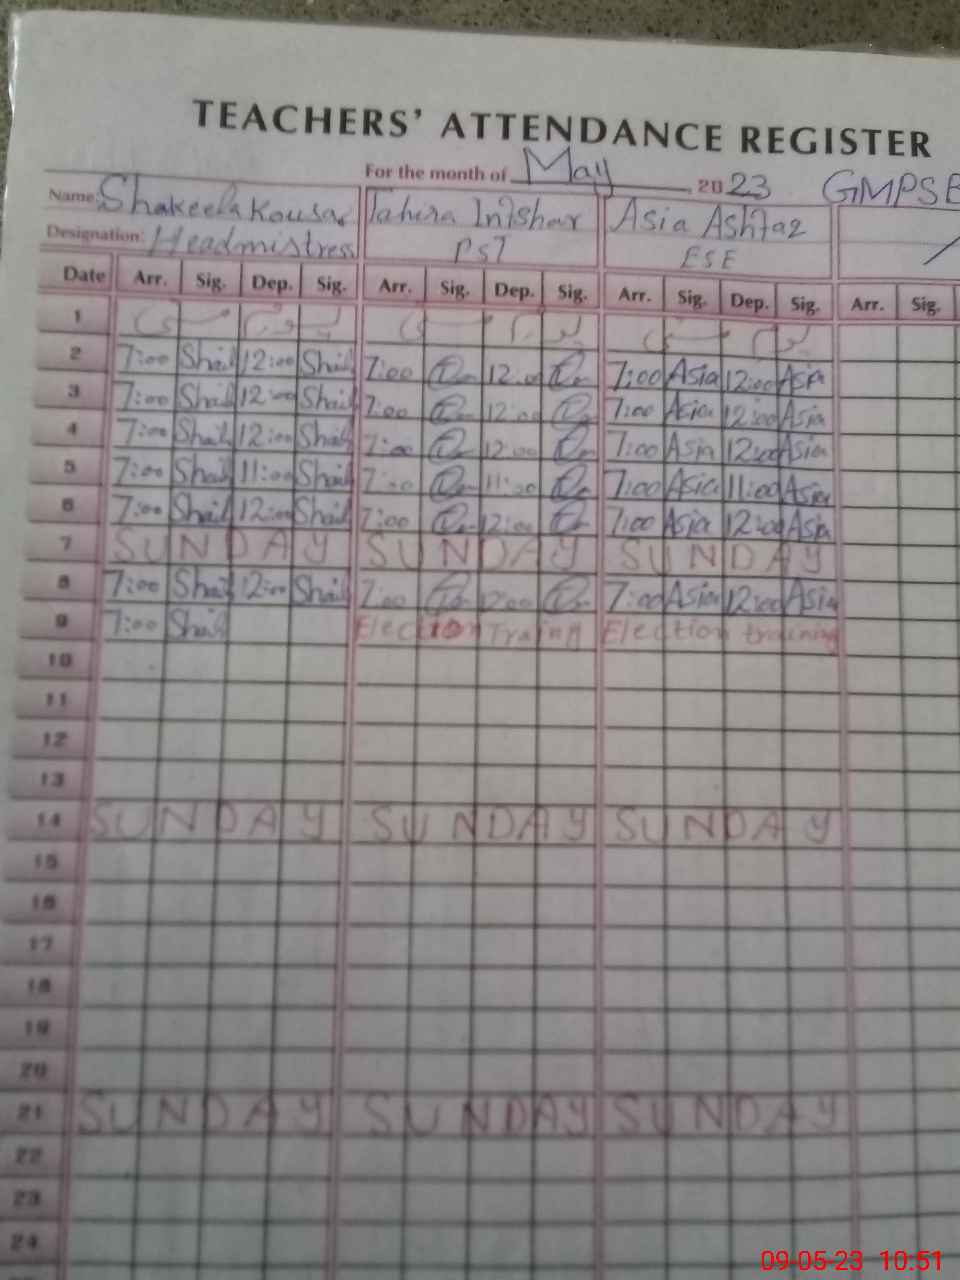 TEACHERS' ATTENDANCE REGISTER
For the month of May 2023 GMPS
Name: Shakeela Kousar Tahira Intshar Asia Ashfaq
Designation: Headmistress PST ESE
Date Arr. Sig. Dep. Sig. Arr. Sig. Dep. Sig. Arr. Sig. Dep. Sig. Arr. Sig.
1
2 7:00 Shail 12:00 Shail 7:00 12:00 7:00 Asia 12:00 Asia
3 7:00 Shail 12:00 Shail 7:00 12:00 7:00 Asia 12:00 Asia
4 7:00 Shail 12:00 Shail 7:00 12:00 7:00 Asia 12:00 Asia
5 7:00 Shail 11:00 Shail 7:00 11:00 7:00 Asia 11:00 Asia
6 7:00 Shail 12:00 Shail 7:00 12:00 7:00 Asia 12:00 Asia
7 SUNDAY SUNDAY SUNDAY
8 7:00 Shail 12:00 Shail 7:00 12:00 7:00 Asia 12:00 Asia
9 7:00 Shail Election Traing Election training
10
11
12
13
14 SUNDAY SUNDAY SUNDAY
15
16
17
18
19
20
21 SUNDAY SUNDAY SUNDAY
22
23
24
09-05-23 10:51